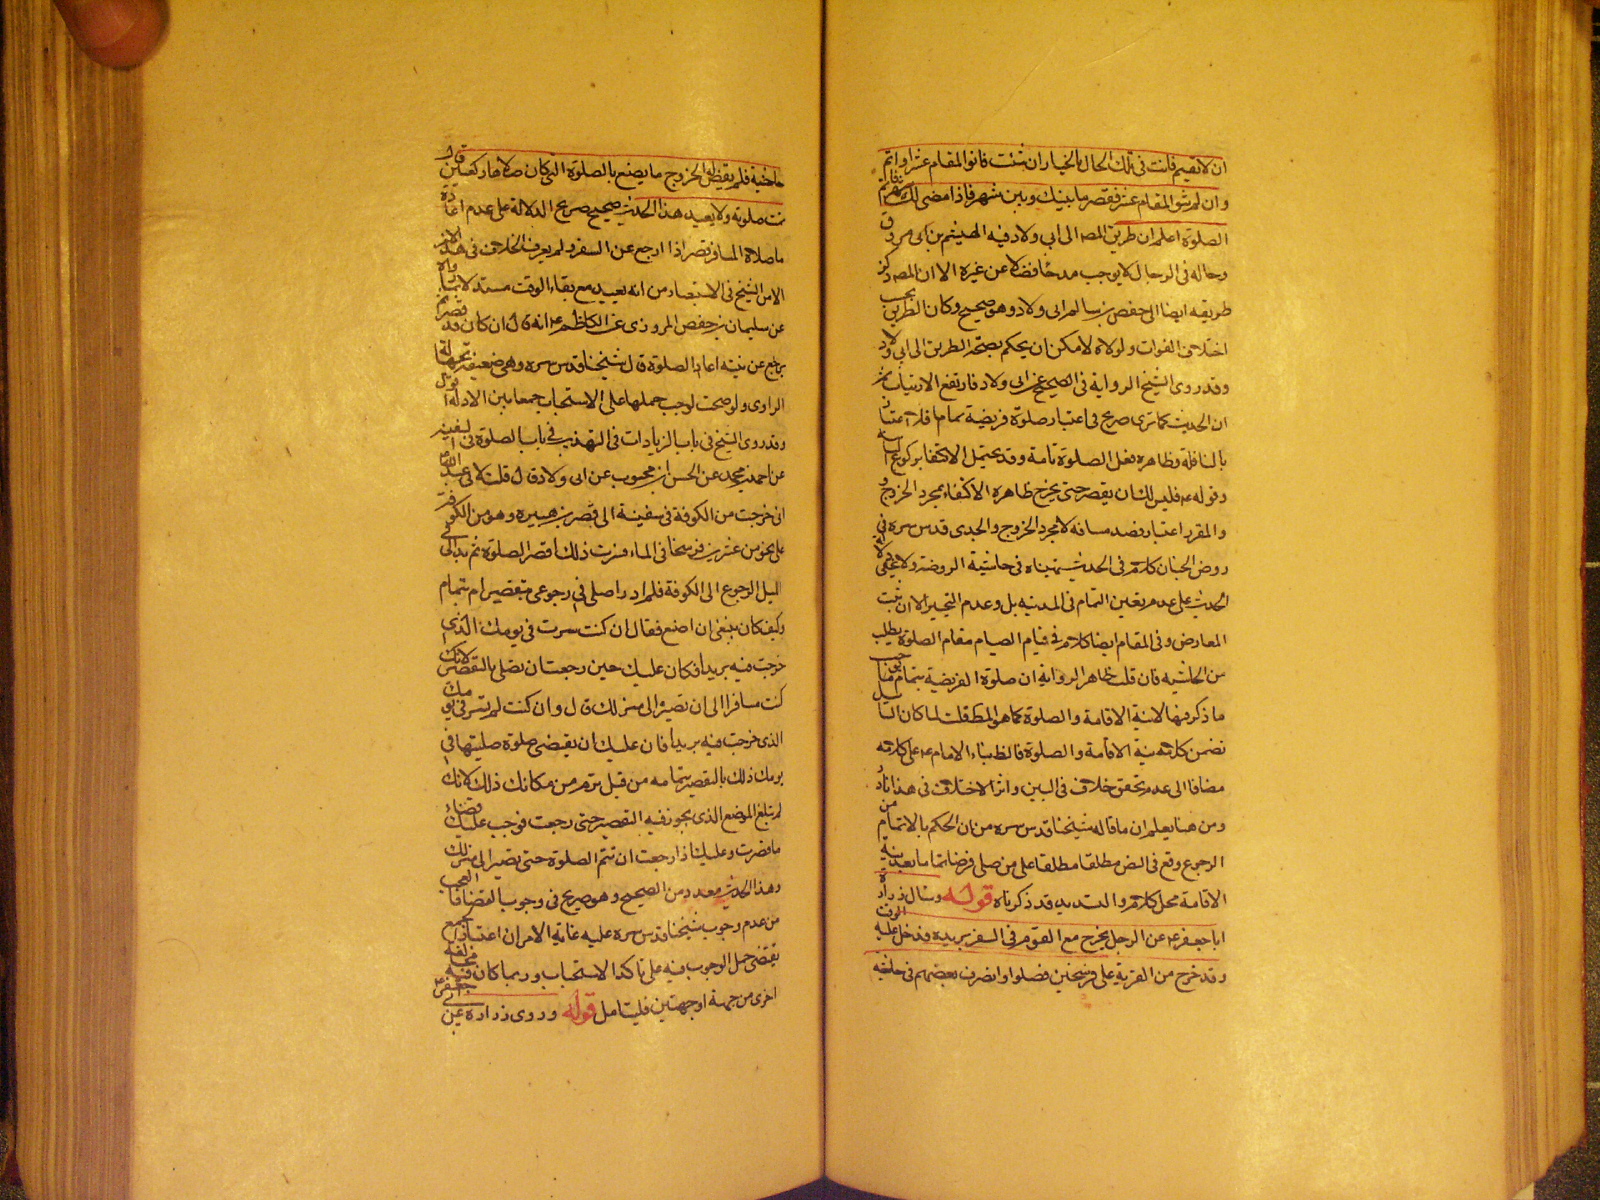 ان لا تقيم فانت في تلك الحال بالخيار ان شئت فانو المقام عشرا واتم
وان لم تنو المقام عشرا فقصر ما بينك وبين شهر فاذا مضى لك شهر فاتم
الصلوة اعلم ان طريق المص الى ابي ولاد فيه الهيثم بن ابي مسروق
وحاله في الرجال لا يوجب مدحا فضلا عن غيره الا ان المص ذكر
طريقه ايضا الى حفص بن سالم ابي ولاد وهو صحيح وكان الطريق بحسب
اختلاف الفوات ولولاه لامكن ان يحكم بصحة الطريق الى ابي ولاد
وقد روى الشيخ الرواية في الصحيح عن ابي ولاد فارتفع الارتياب ثم
ان الحديث كما ترى صريح في اعتبار صلوة فريضة بتمام فلا اعتبار
بالنافلة وظاهره فعل الصلوة تامة وقد يحتمل الاكتفاء بركوع الثالثة
وقوله ع فليس لك ان تقصر حتى تخرج ظاهره الاكتفاء بمجرد الخروج و
والمقرر اعتبار قصد مسافة لا مجرد الخروج والجدي قدس سره في
روض الجنان كلام في الحديث بيناه في حاشية الروضة ولا يخفى دلالة
الحديث على عدم تعين التمام في المدينة بل وعدم التخيير الا ان يثبت
المعارض وفي المقام ايضا كلام في قيام الصيام مقام الصلوة يطلب
من الحاشية فان قلت ظاهر الرواية ان صلوة الفريضة بتمام
ما ذكر منها لا نية الاقامة والصلوة كما هو المط قلت لما كان السائل
تضمن كلامه نية الاقامة والصلوة فالظ بناء الامام ع على كلامه
مضافا الى عدم تحقق خلاف في البين واثر الاختلاف في هذا نادر
ومن هنا يعلم ان ما قاله شيخنا قدس سره من ان الحكم بالاتمام من
الرجوع وقع في النص مطلقا مطلقا على من صلى فرضا تماما بعد نية
الاقامة محل كلام والتسديد قد ذكرناه قوله وسال زرارة
ابا جعفر ع عن الرجل يخرج مع القوم في السفر يريده فدخل عليه الوقت
وقد خرج من القرية على فرسخين فصلوا وانصرف بعضهم في حاجة
حاجته فلم يقض له الخروج ما يصنع بالصلوة التي كان صلاها ركعتين قال
تمت صلوته ولا يعيد هذا الحديث صحيح صريح الدلالة على عدم اعادة
ما صلاه المسافر قصر اذا ارجع عن السفر ولم يعرف الخلاف في هذا الا
الامر الشيخ في الاستبصار من انه يعيد مع بقاء الوقت مستدلا بما رواه
عن سليمان بن حفص المروزي عن الكاظم ع انه قال ان كان قد قصر ثم
رجع عن نيته اعاد الصلوة قال شيخنا قدس سره وهي ضعيفة بجهالة
الراوي ولو صحت لوجب حملها على الاستحباب جمعا بين الادلة اقول
وقد روى الشيخ في باب الزيادات في التهذيب في باب الصلوة في السفينة
عن احمد بن محمد عن الحسن بن محبوب عن ابي ولاد قال قلت لابي عبد الله ع
اني خرجت من الكوفة في سفينة الى قصر بن هبيرة وهو من الكوفة
على نحو من عشرين فرسخا في الماء فسرت ذلك اقصر الصلوة ثم بدا لي في
الليل الرجوع الى الكوفة فلم ادر اصلي في رجوعي بتقصير ام بتمام
وكيف كان ينبغي ان اصنع فقال ان كنت سرت في يومك الذي
خرجت فيه بريدا فكان عليك حين رجعت ان تصلي بالتقصير لانك
كنت مسافرا الى ان تصير الى منزلك قال وان كنت لم تسر في يومك
الذي خرجت فيه بريدا فان عليك ان تقضي صلوة صليتها في
يومك ذلك بالتقصير بتمامه من قبل ترم من مكانك ذلك لانك
لم تبلغ الموضع الذي يجوز فيه التقصير حتى رجعت فوجب عليك قضاء
ما قصرت وعليك اذا رجعت ان تتم الصلوة حتى تصير الى منزلك
وهذا الحديث معدود من الصحيح وهو صريح في وجوب القضاء فالعجب
من عدم وجوب شيخنا قدس سره عليه غاية الامر ان اعتبار الجمع
يقتضي حمل الوجوب فيه على تاكد الاستحباب وربما كان فيه مخالفة
اخرى من جهة او جهتين فليتامل قوله وروى زرارة عن ابي جعفر ع